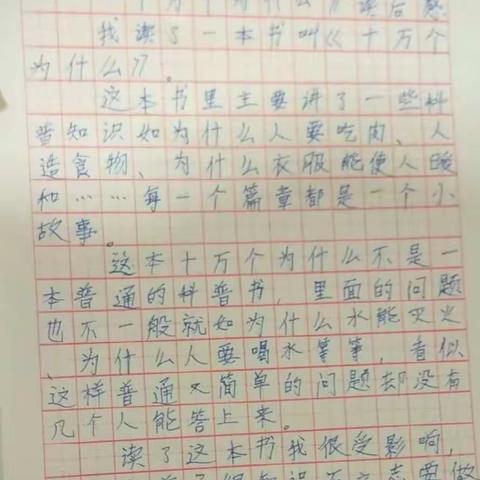 十万个为什么》读后感
我读了一本书叫《十万个
为什么》。
这本书里主要讲了一些科
普知识如为什么人要吃肉、人
造食物、为什么衣服能使人暖
和……每一个篇章都是一个小
故事。
这本十万个为什么不是一
本普通的科普书,里面的问题
也不一般就如为什么水能灭火
、为什么人要喝水等等,看似
这样普通又简单的问题却没有
几个人能答上来。
读了这本书我很受影响,
知识 要做